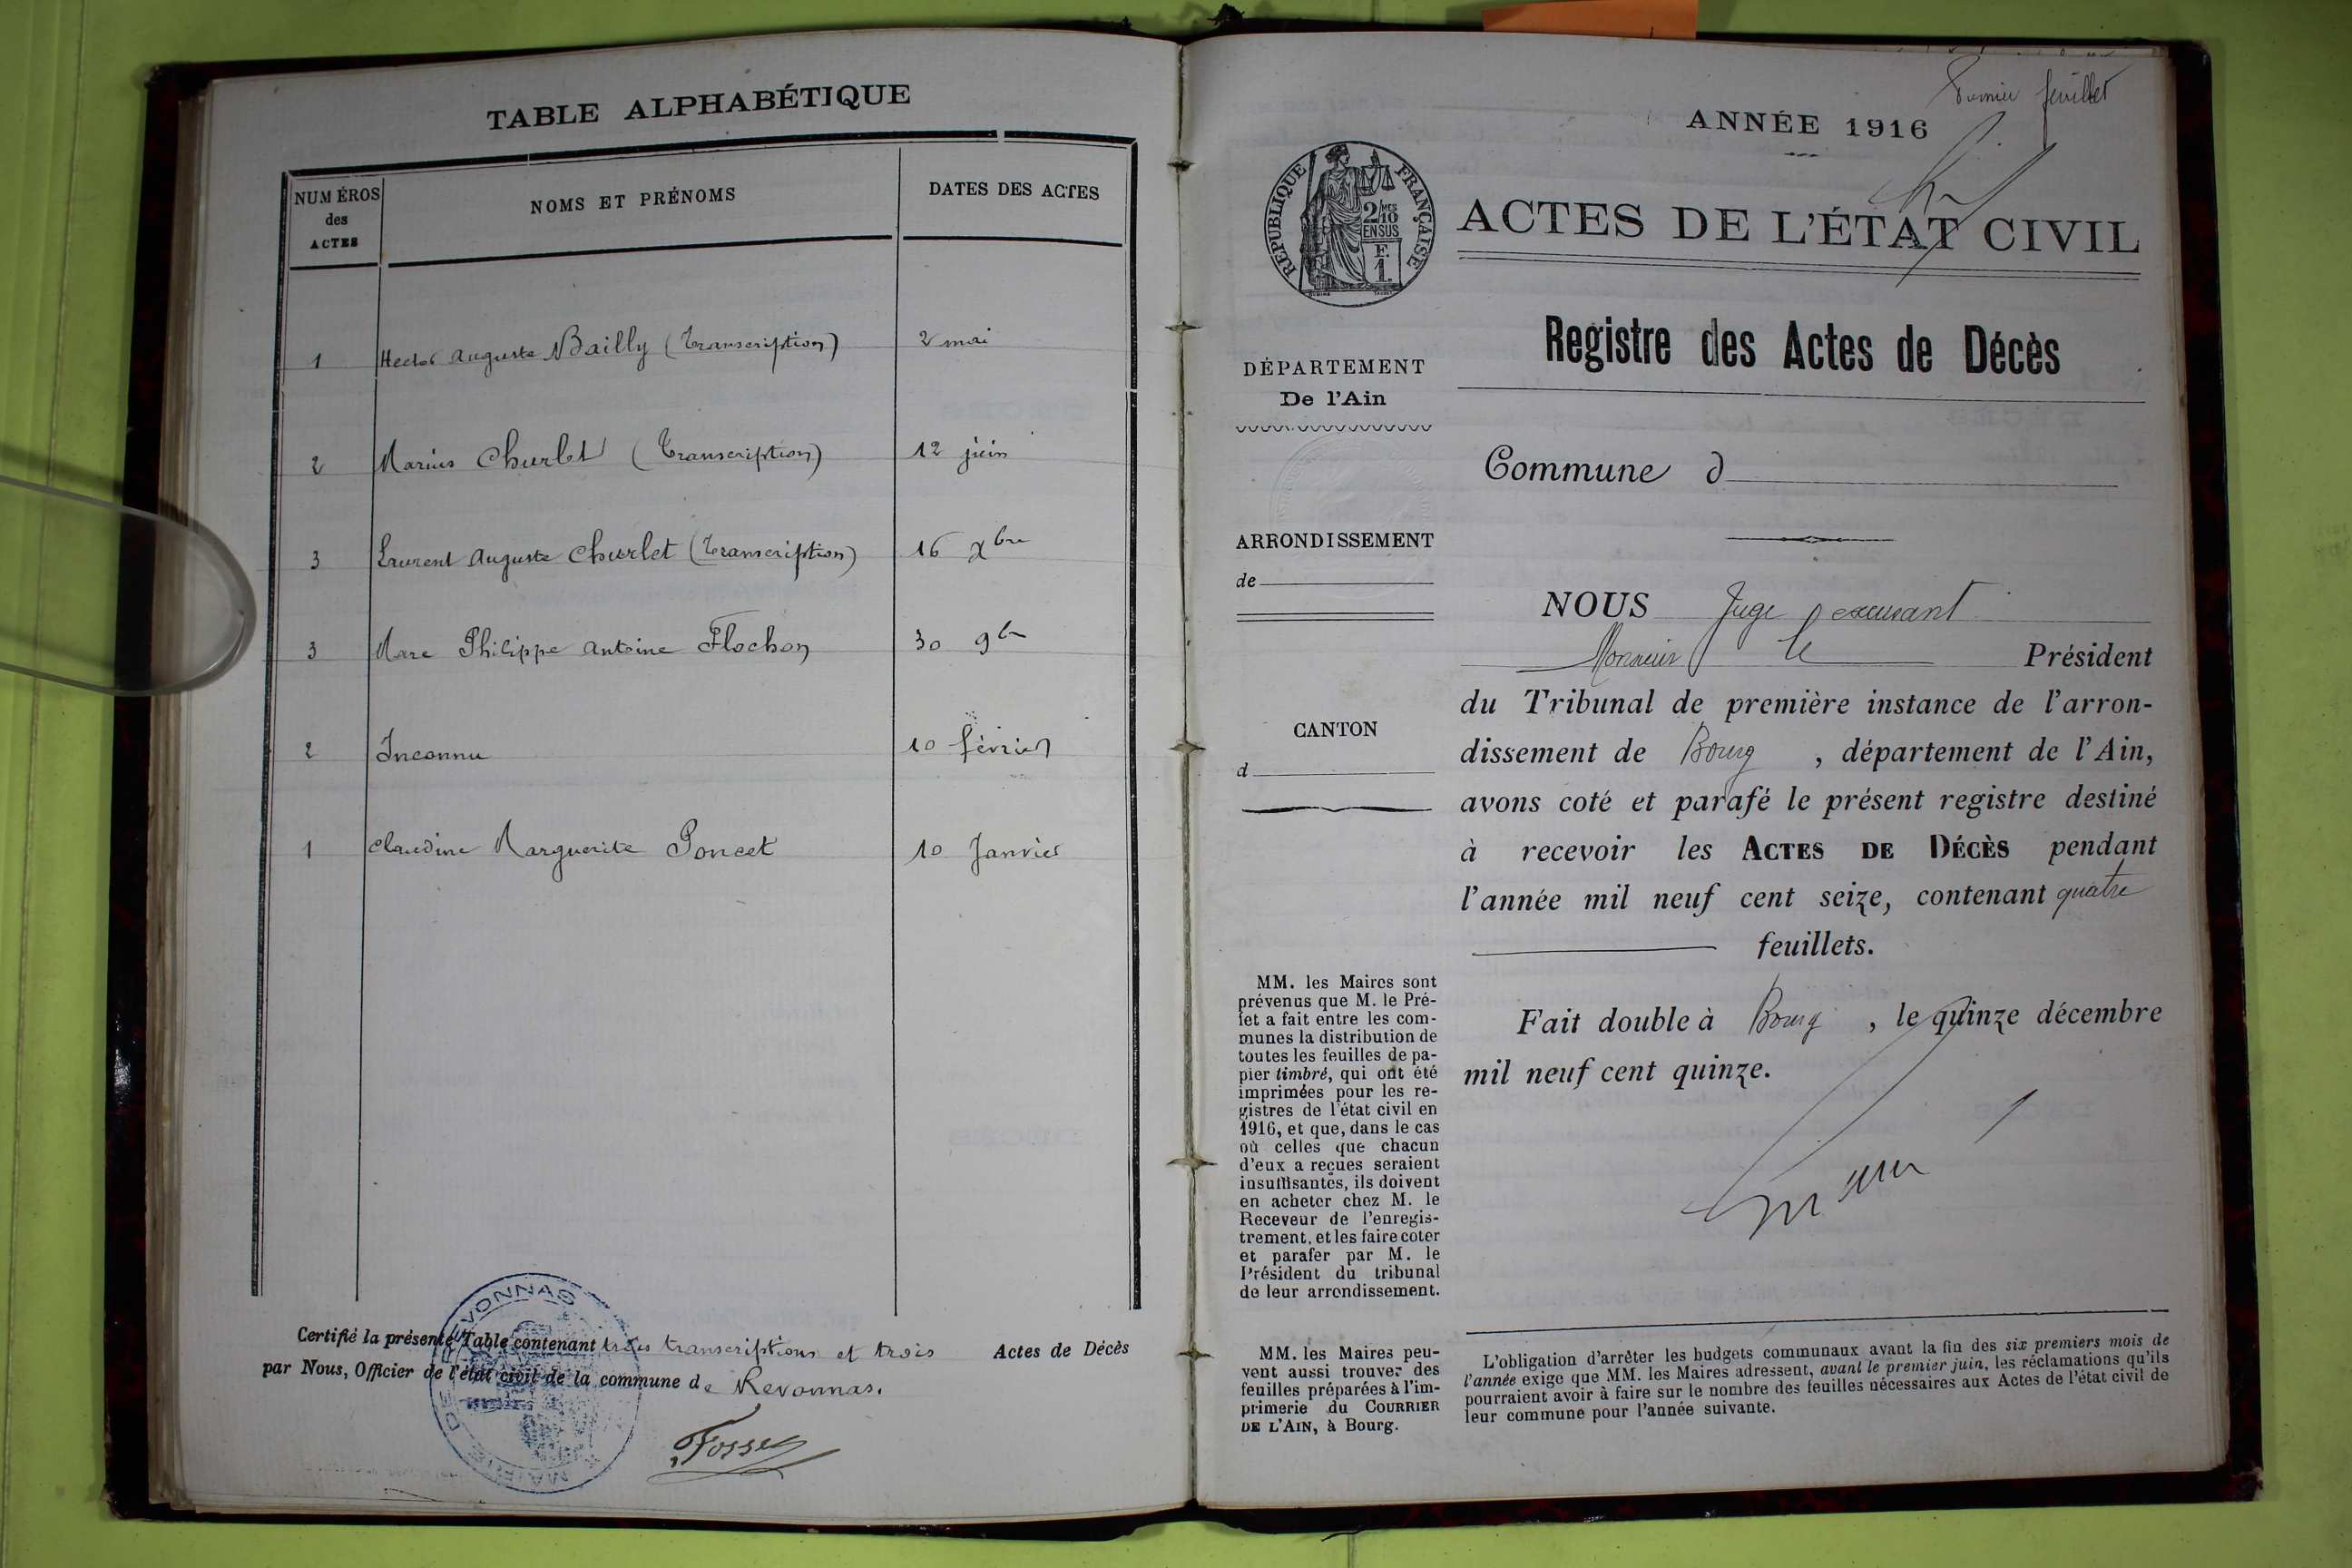 TABLE ALPHABÉTIQUE
NUMÉROS
des
ACTES
NOMS ET PRÉNOMS
DATES DES ACTES
1 Hector Auguste Bailly (Transcription) 2 mai
2 Marius Churlet (Transcription) 12 juin
3 Laurent Auguste Churlet (Transcription) 16 Xbre
3 Marc Philippe Antoine Flochon 30 9bre
2 Inconnu 10 février
1 Claudine Marguerite Poncet 10 Janvier
Certifié la présente Table contenant trois transcriptions et trois Actes de Décès
par Nous, Officier de l'état civil de la commune de Revonnas.
MAIRIE DE REVONNAS
Fosse
feuillet
ANNÉE 1916
RÉPUBLIQUE FRANÇAISE
2/10 MES
EN SUS
F.
1.
ACTES DE L'ÉTAT CIVIL
Registre des Actes de Décès
DÉPARTEMENT
De l'Ain
ARRONDISSEMENT
de
CANTON
d
MM. les Maires sont
prévenus que M. le Pré-
fet a fait entre les com-
munes la distribution de
toutes les feuilles de pa-
pier timbré, qui ont été
imprimées pour les re-
gistres de l'état civil en
1916, et que, dans le cas
où celles que chacun
d'eux a reçues seraient
insuffisantes, ils doivent
en acheter chez M. le
Receveur de l'enregis-
trement, et les faire coter
et parafer par M. le
Président du tribunal
de leur arrondissement.
MM. les Maires peu-
vent aussi trouver des
feuilles préparées à l'im-
primerie du COURRIER
DE L'AIN, à Bourg.
Commune d
NOUS Juge
Monsieur le Président
du Tribunal de première instance de l'arron-
dissement de Bourg, département de l'Ain,
avons coté et parafé le présent registre destiné
à recevoir les ACTES DE DÉCÈS pendant
l'année mil neuf cent seize, contenant quatre
feuillets.
Fait double à Bourg, le quinze décembre
mil neuf cent quinze.
L'obligation d'arrêter les budgets communaux avant la fin des six premiers mois de
l'année exige que MM. les Maires adressent, avant le premier juin, les réclamations qu'ils
pourraient avoir à faire sur le nombre des feuilles nécessaires aux Actes de l'état civil de
leur commune pour l'année suivante.